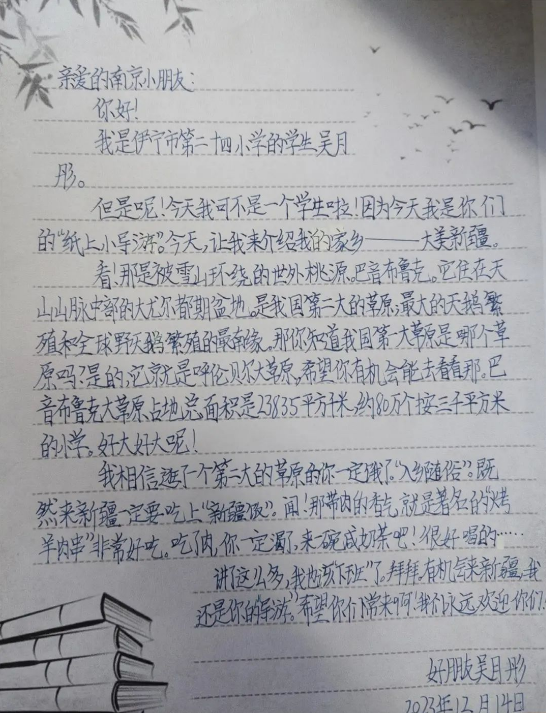 亲爱的南京小朋友：
你好！
我是伊宁市第二十四小学的学生吴月
彤。
但是呢！今天我可不是一个学生啦！因为今天我是你们
的“纸上小导游”。今天，让我来介绍我的家乡——大美新疆。
看！那是被雪山环绕的世外桃源。巴音布鲁克。它住在天
山山脉中部的大尤尔都斯盆地。是我国第二大的草原，最大的天鹅繁
殖和全球野天鹅繁殖的最南缘。那你知道我国第一大草原是哪个草
原吗？是的，它就是呼伦贝尔大草原，希望你有机会能去看看那。巴
音布鲁克大草原占地总面积是23835平方千米，约80万个按三千平方米
的小学。好大好大呢！
我相信逛了一个第二大的草原的你一定饿了。“入乡随俗”。既
然来新疆一定要吃上“新疆饭”。闻！那带肉的香气，就是著名的“烤
羊肉串”非常好吃。吃了肉，你一定渴了，来一碗咸奶茶吧！很好喝的……
讲了这么多，我应该“下班”了。拜拜。有机会来新疆，我
还是你的“导游”。希望你们常来啊！我们永远欢迎你们！
好朋友吴月彤
2023年12月14日